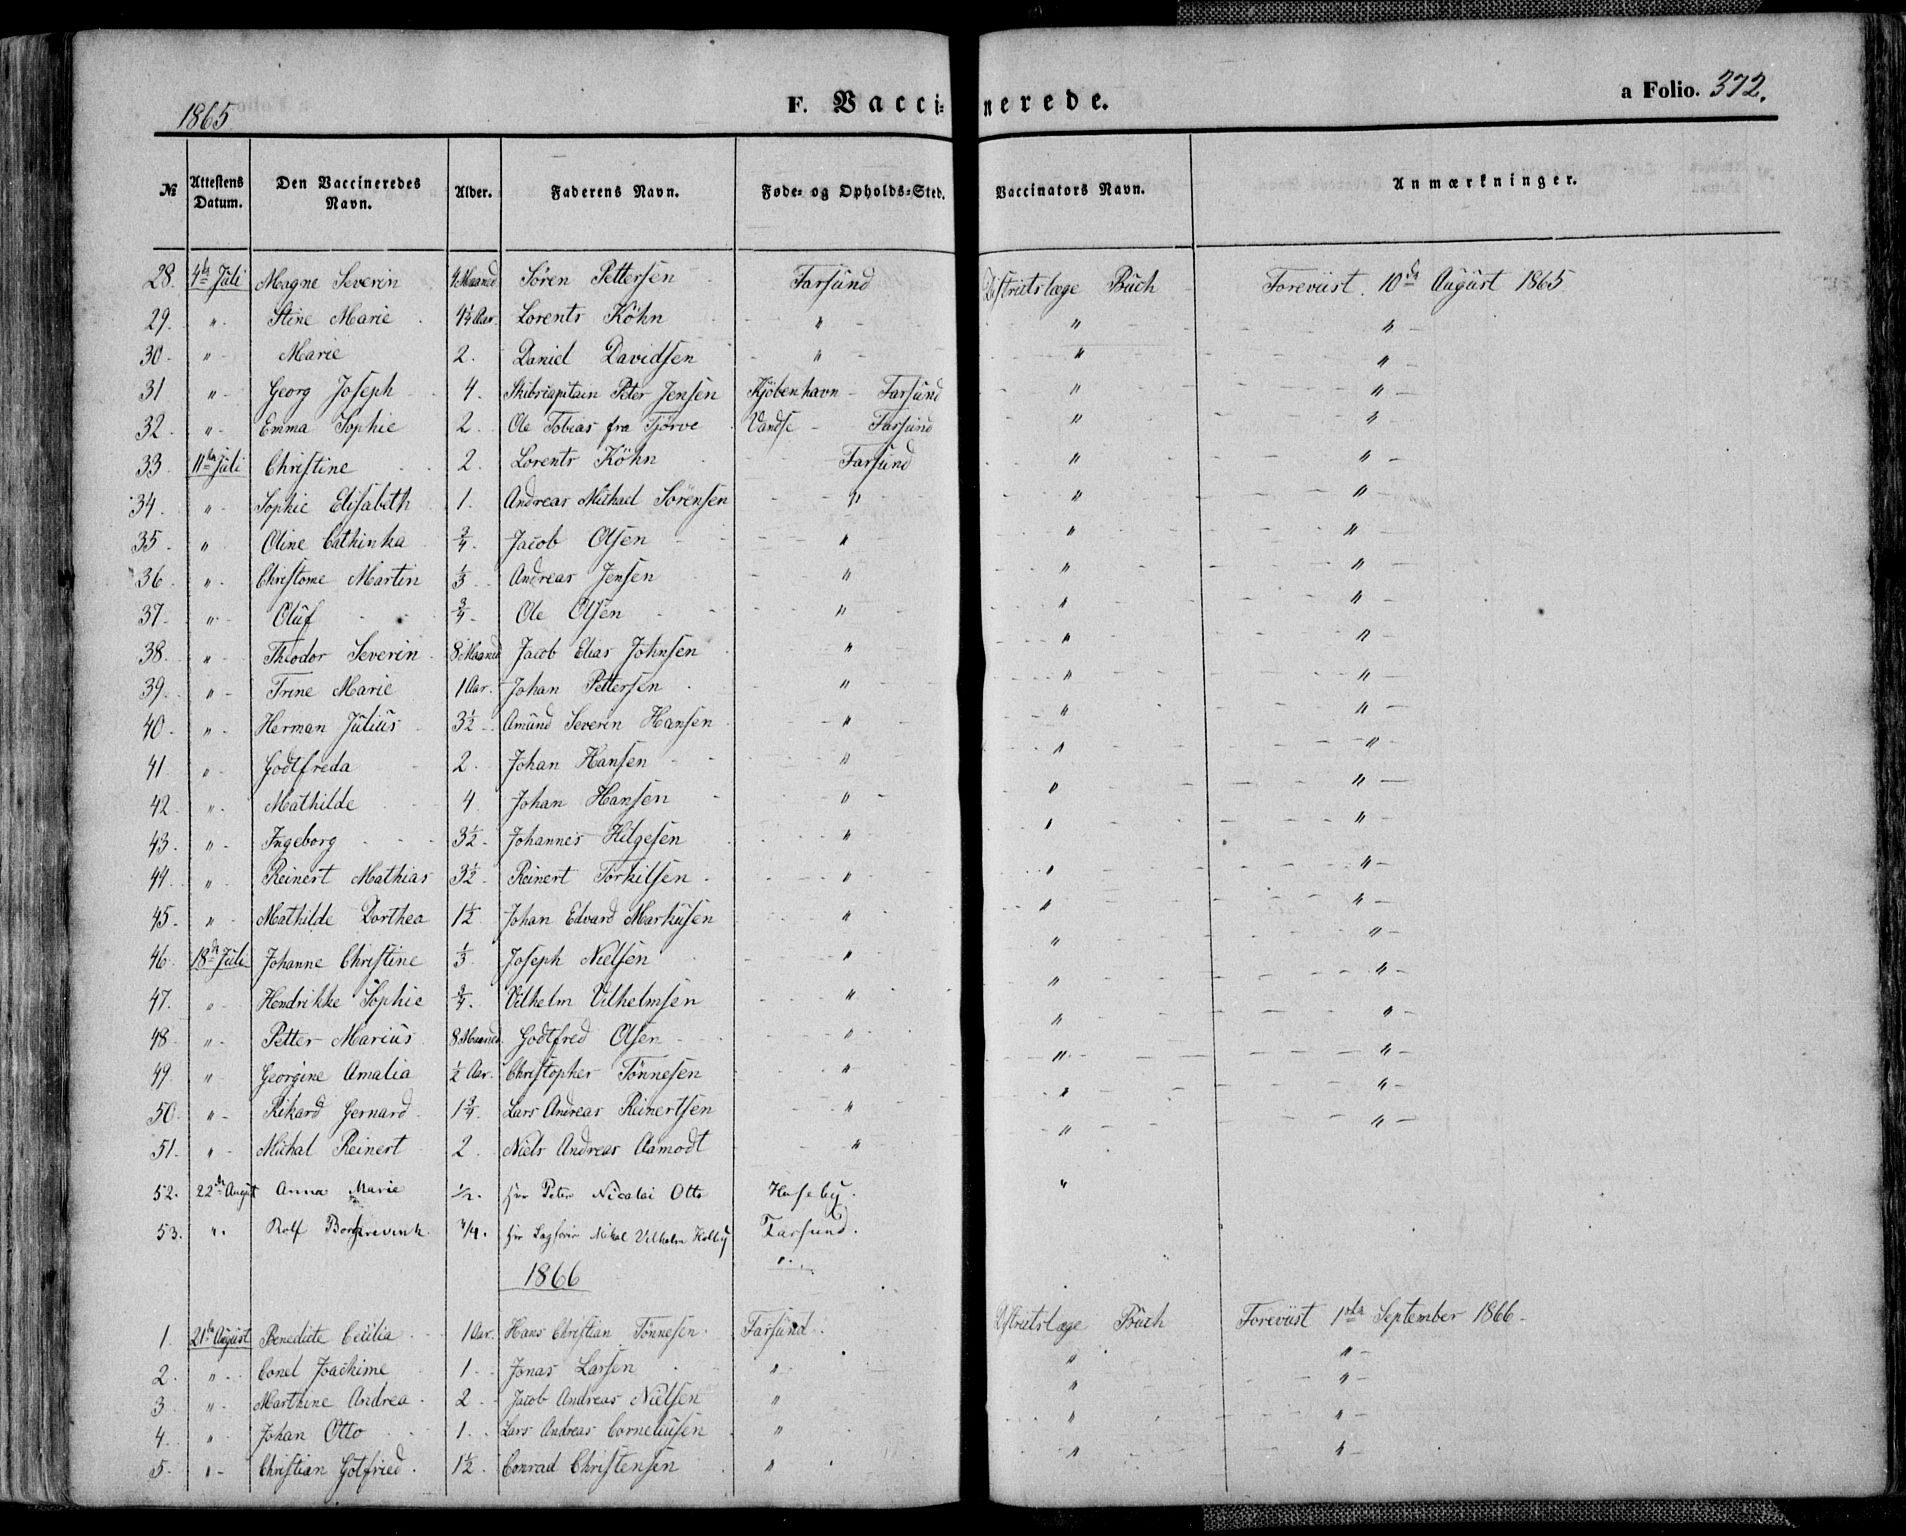 1865
F. Vaccinerede.
a Folio. 372.
№ Attestens Datum. Den Vaccineredes Navn. Alder. Faderens Navn. Føde- og Opholds-Sted. Vaccinators Navn. Anmærkninger.
28. 4de Juli Magne Severin 4 Maaned Sören Pettersen Farsund Distriktslæge Buch Foreviist 10de August 1865
29. " Stine Marie 4½ Aar. Lorents Köhn " " "
30. " Marie 2. Daniel Davidsen " " "
31 " Georg Joseph 4. Skibscapitain Peter Jensen Kjöbenhavn - Farsund " "
32. " Emma Sophie 2. Ole Tobias fra Tjörve Vandse - Farsund " "
33. 11te Juli Christine 2. Lorents Köhn Farsund " "
34. " Sophie Elisabeth 1. Andreas Michael Sörensen " " "
35. " Oline Cathinka ¾. Jacob Olsen " " "
36. " Martin ⅓. Andreas Jensen " " "
37. " Oluf ¾. Ole Olsen " " "
38. " Theodor Severin 8 Maaned Jacob Elias Johnsen " " "
39. " Trine Marie 1 Aar. Johan Pettersen " " "
40. " Herman Julius 3½. Amund Severin Hansen " " "
41 " Godtfreda 2. Johan Hansen " " "
42. " Mathilde 4. Johan Hansen " " "
43. " Ingeborg 3½. Johannes Helgesen " " "
44. " Reinert Mathias 3½. Reinert Törkilsen " " "
45. " Mathilde Dorthea 1½. Johan Edvard Markusen " " "
46. 18de Juli Johanne Christine ⅓. Joseph Nielsen " " "
47. " Hendrikke Sophie ¾. Vilhelm Vilhelmsen " " "
48. " Petter Marius 8 Maaned. Godtfred Olsen " " "
49. " Georgine Amalia ½ Aar. Christopher Tönnesen " " "
50. " Rikard Gernard 1¾. Lars Andreas Reinertsen " " "
51. " Michal Reinert 2. Niels Andreas Aamodt " "
52. 22de August Anna Marie ½. Peter Nicolai Otto Huseby. "
53. " Rolf Borchrevink ¾. Mikal Vilhelm Farsund.
1866 "
1. 21de August Benedicte Cecilia 1 Aar. Hans Christian Tönnesen. Farsund. Distriktslæge Buch Foreviist 1ste September 1866.
2. " Conel Joachime 1. Jonas Larsen " " "
3. " Marthine Andrea 2. Jacob Andreas Nielsen " " "
4. " Johan Otto 1. Lars Andreas Corneliusen " " "
5. " Christian Gotfried. 1½. Conrad Christensen " " "